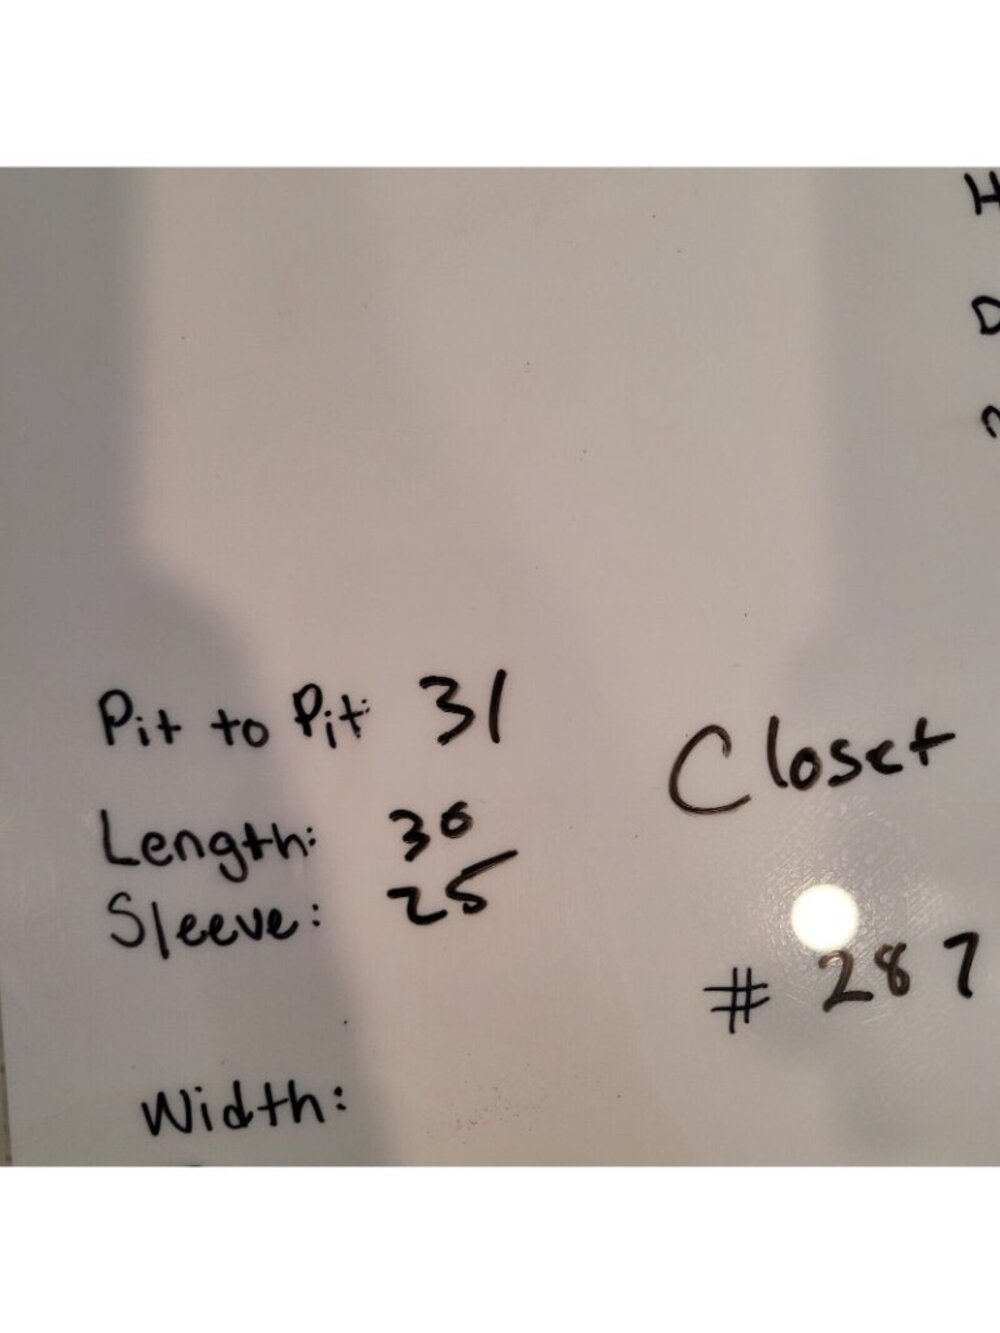 H
D
Pit to Pit: 31
Length: 30
Sleeve: 25
Closet
# 287
Width: